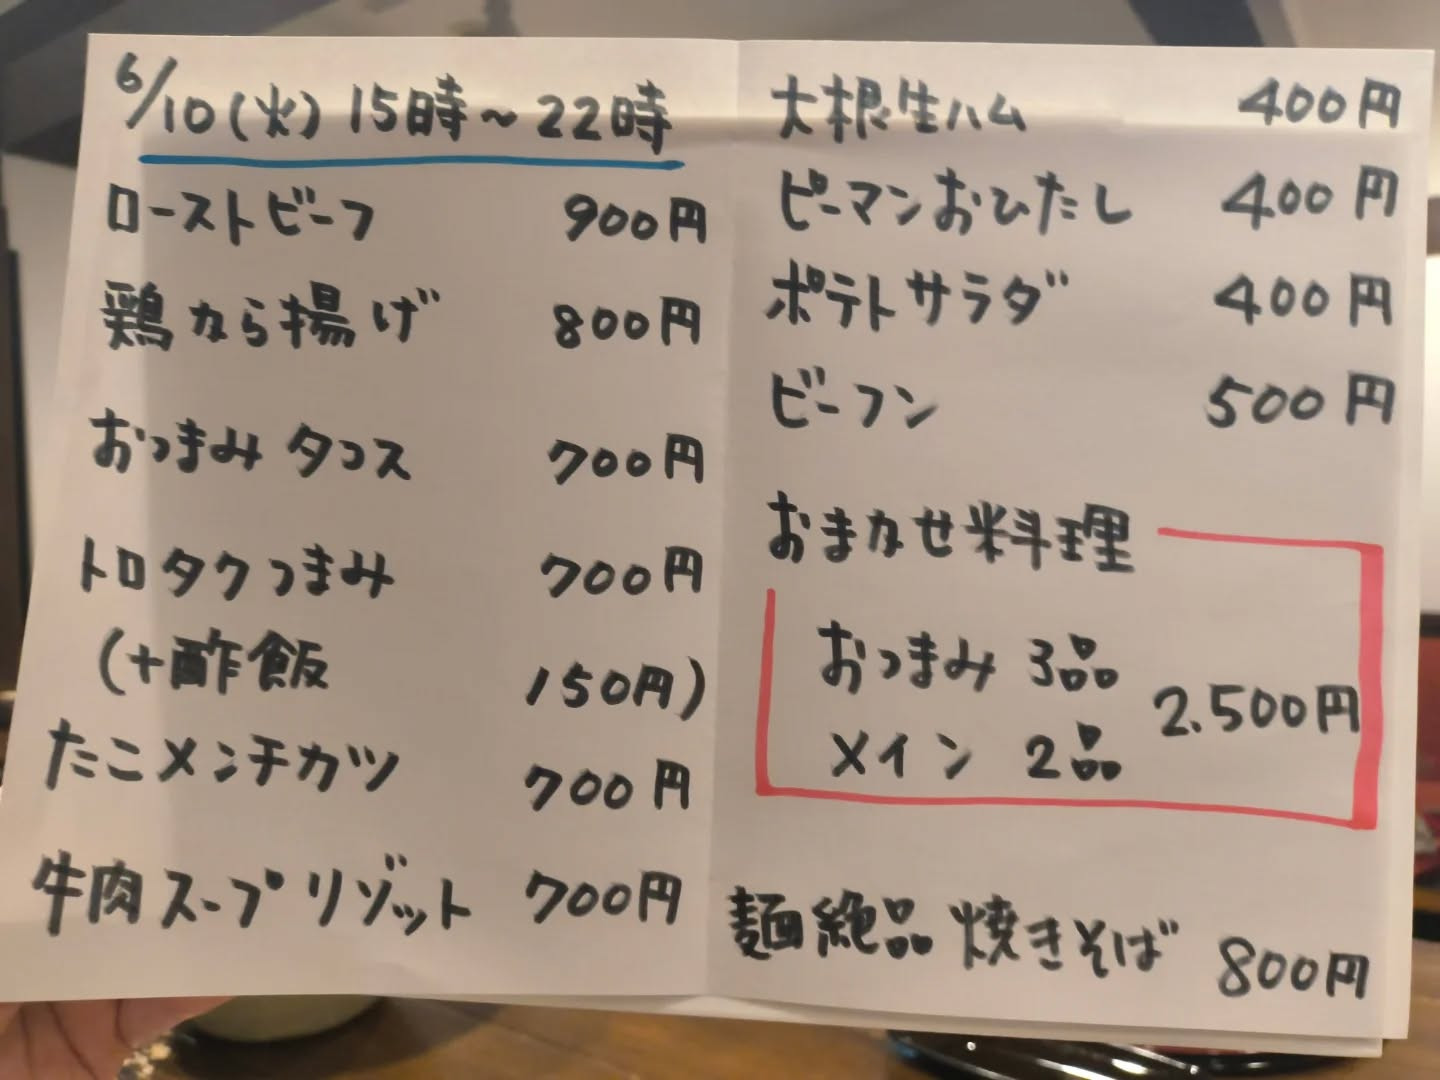 6/10(火)15時~22時
ローストビーフ 900円
鶏から揚げ 800円
おつまみタコス 700円
トロタクつまみ 700円
(+酢飯 150円)
たこメンチカツ 700円
牛肉スープリゾット 700円
大根生ハム 400円
ピーマンおひたし 400円
ポテトサラダ 400円
ビーフン 500円
おまかせ料理
おつまみ 3品
2.500円
メイン 2品
麺絶品焼きそば 800円